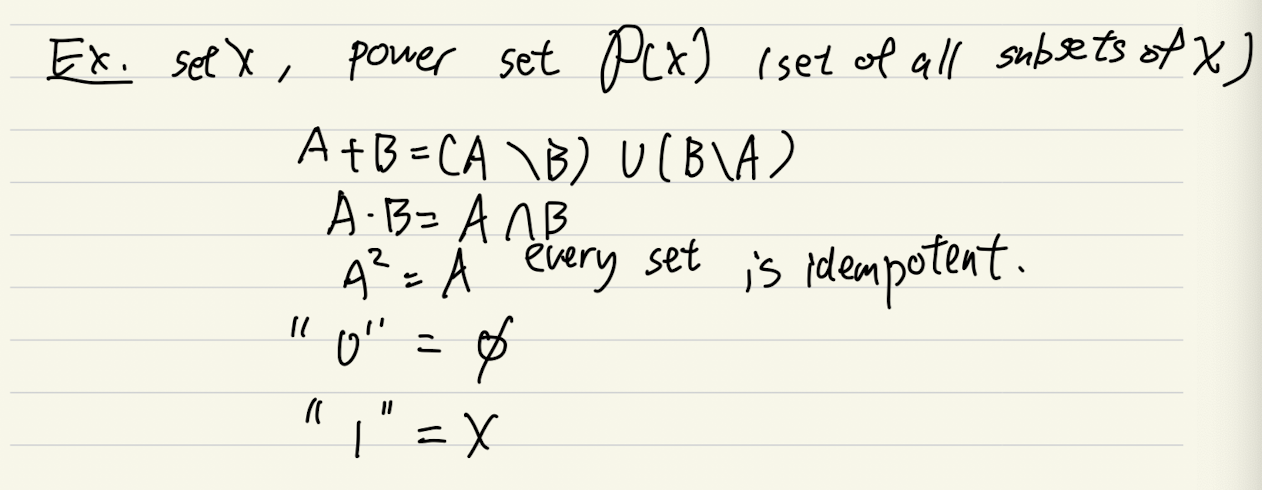 Ex. set X, power set P(X) (set of all subsets of X)
A+B=(A\B) ∪ (B\A)
A·B= A∩B
A² = A every set is idempotent.
"0" = ∅
"1" = X